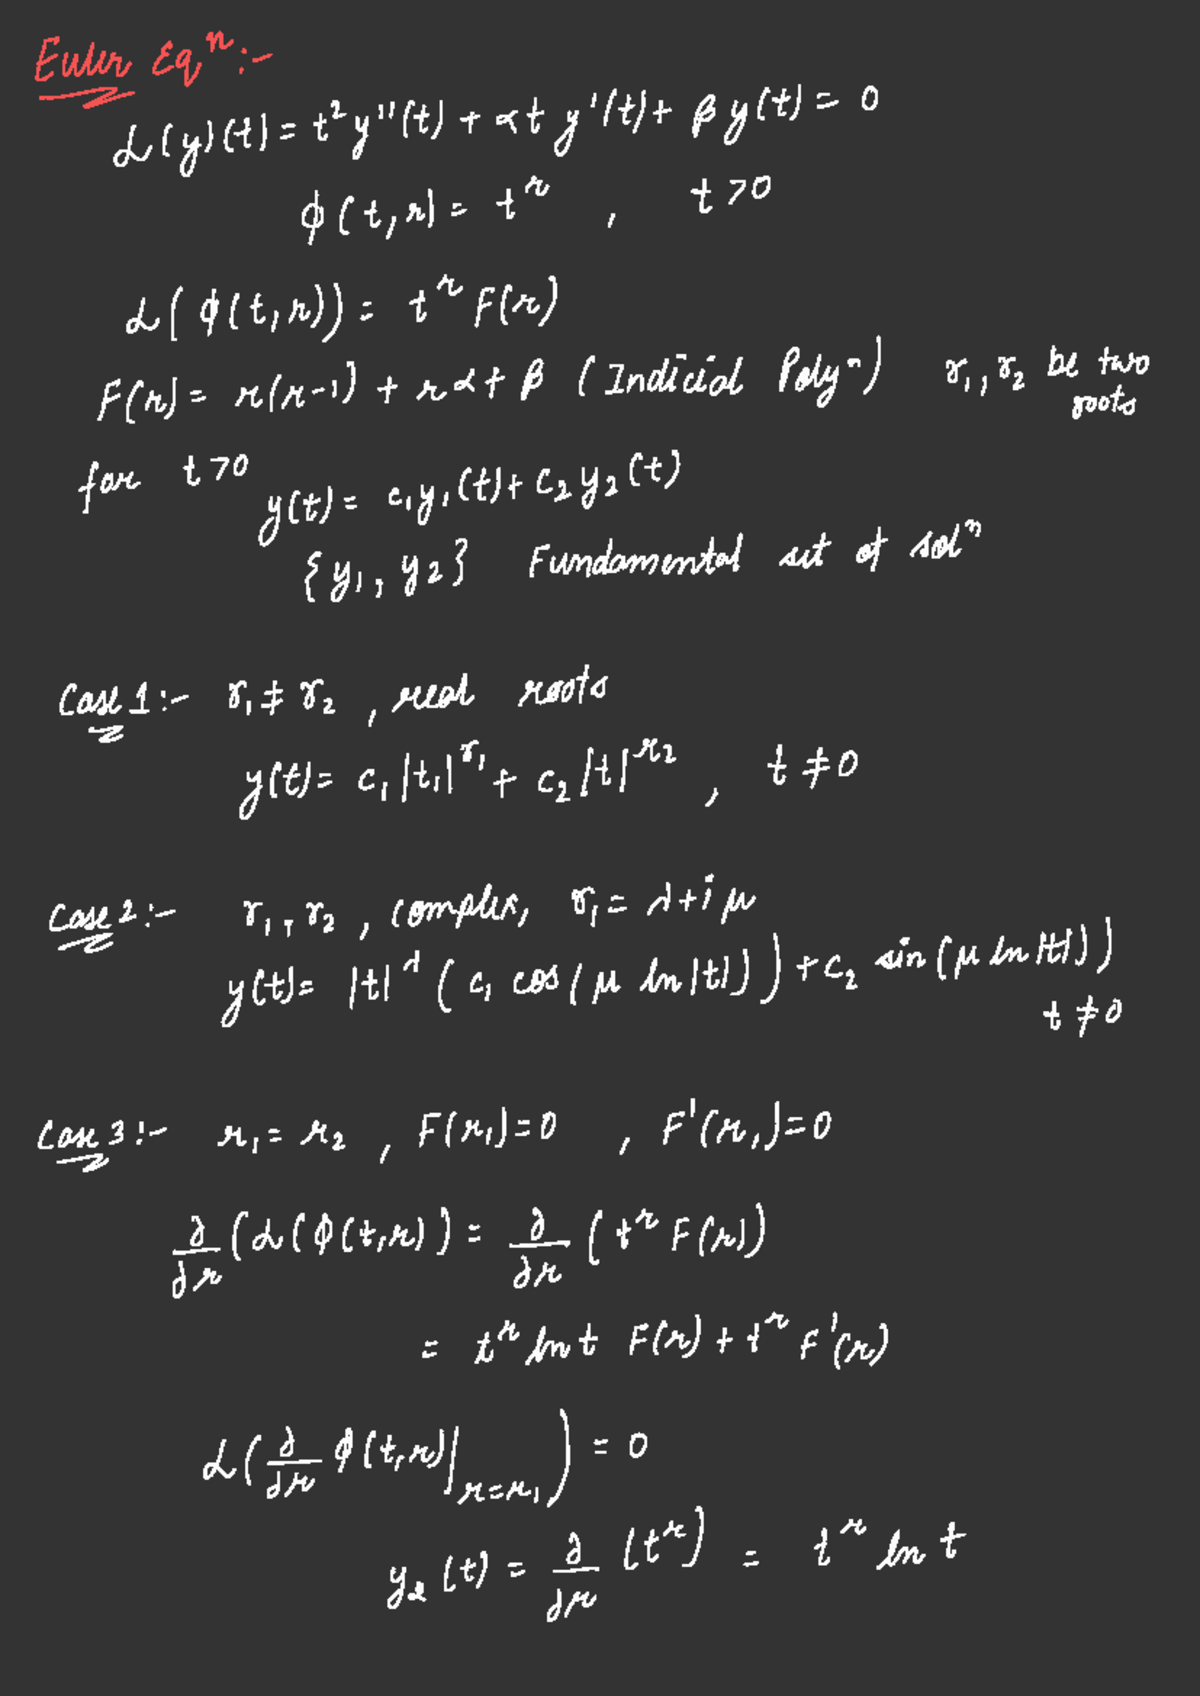 Euler Eqⁿ:-
L(y)(t) = t²y''(t) + αt y'(t) + βy(t) = 0
ϕ(t,r) = t^r , t>0
L(ϕ(t,r)) = t^r F(r)
F(r) = r(r-1) + rα + β (Indicial Polyⁿ) r₁, r₂ be two roots
for t>0
y(t) = c₁y₁(t) + c₂y₂(t)
{y₁, y₂} Fundamental set of solⁿ
Case 1:- r₁ ≠ r₂ , real roots
y(t) = c₁|t₁|^r₁ + c₂|t|^r₂ , t ≠ 0
Case 2:- r₁, r₂ , complex, r₁ = λ + iμ
y(t) = |t|^λ (c₁ cos(μ ln|t|)) + c₂ sin(μ ln|t|))
t ≠ 0
Case 3:- r₁ = r₂ , F(r₁) = 0 , F'(r₁) = 0
∂/∂r (L(ϕ(t,r)) = ∂/∂r (t^r F(r))
= t^r ln t F(r) + t^r F'(r)
L(∂/∂r ϕ(t,r)|_{r=r₁}) = 0
y₂(t) = ∂/∂r (t^r) = t^r ln t